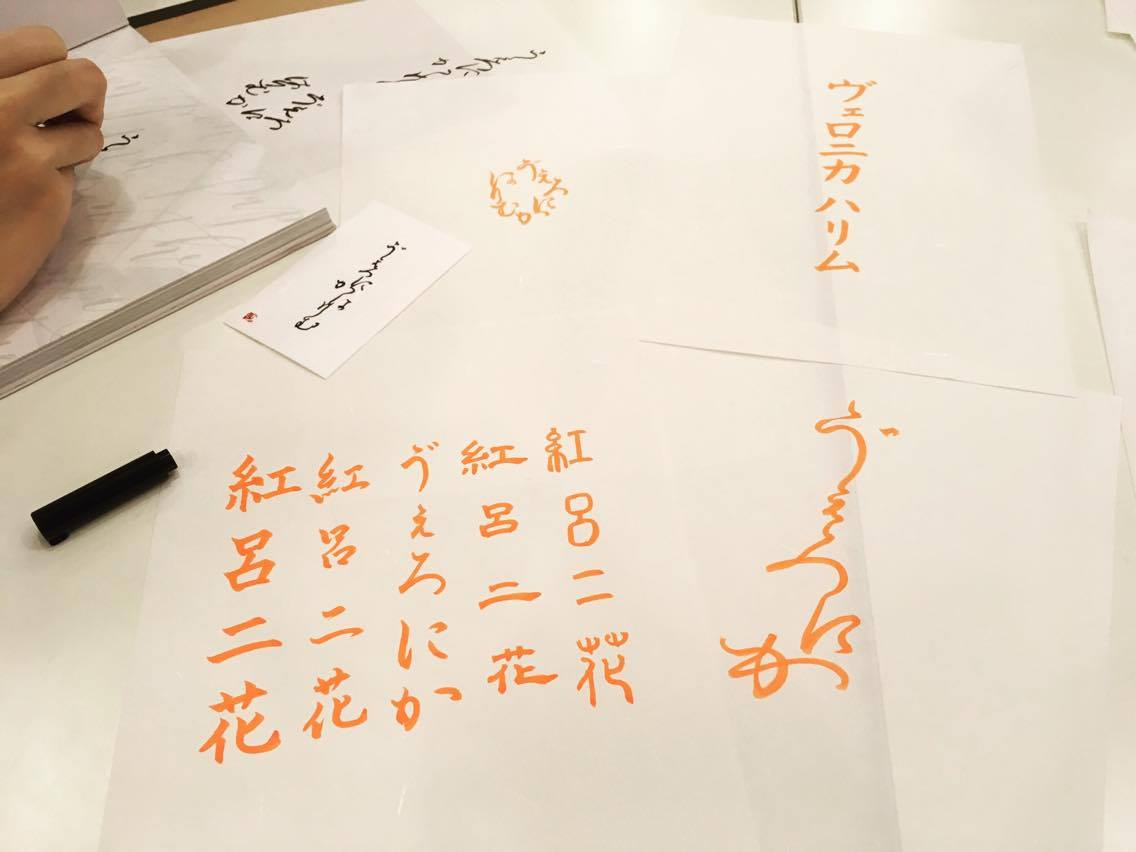 ヴェロニカハリム
ゔぇろにかはりむ
ゔぇろにかはりむ
ゔぇろにか
紅呂二花
紅呂二花
ゔぇろにか
紅呂二花
紅呂二花